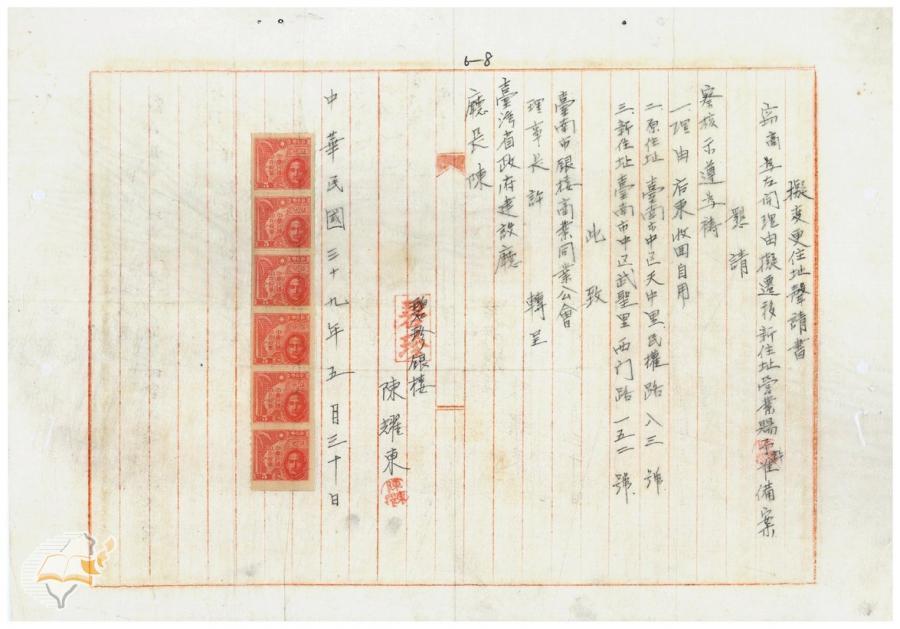 6-8
擬变更住址聲請書
窃商為左開理由擬遷移新住址營業賜予准備案
懇請
察核示遵為禱
一、理由 店東收回自用
二、原住址 臺南市中区天中里民權路八三號
三、新住址 臺南市中区武聖里西门路一五二號
此致
臺南市銀樓商業同業公會
理事長許 轉呈
臺灣省政府建設廳
廳長陳
碧珍銀樓
陳耀東
中華民國三十九年五月三十日